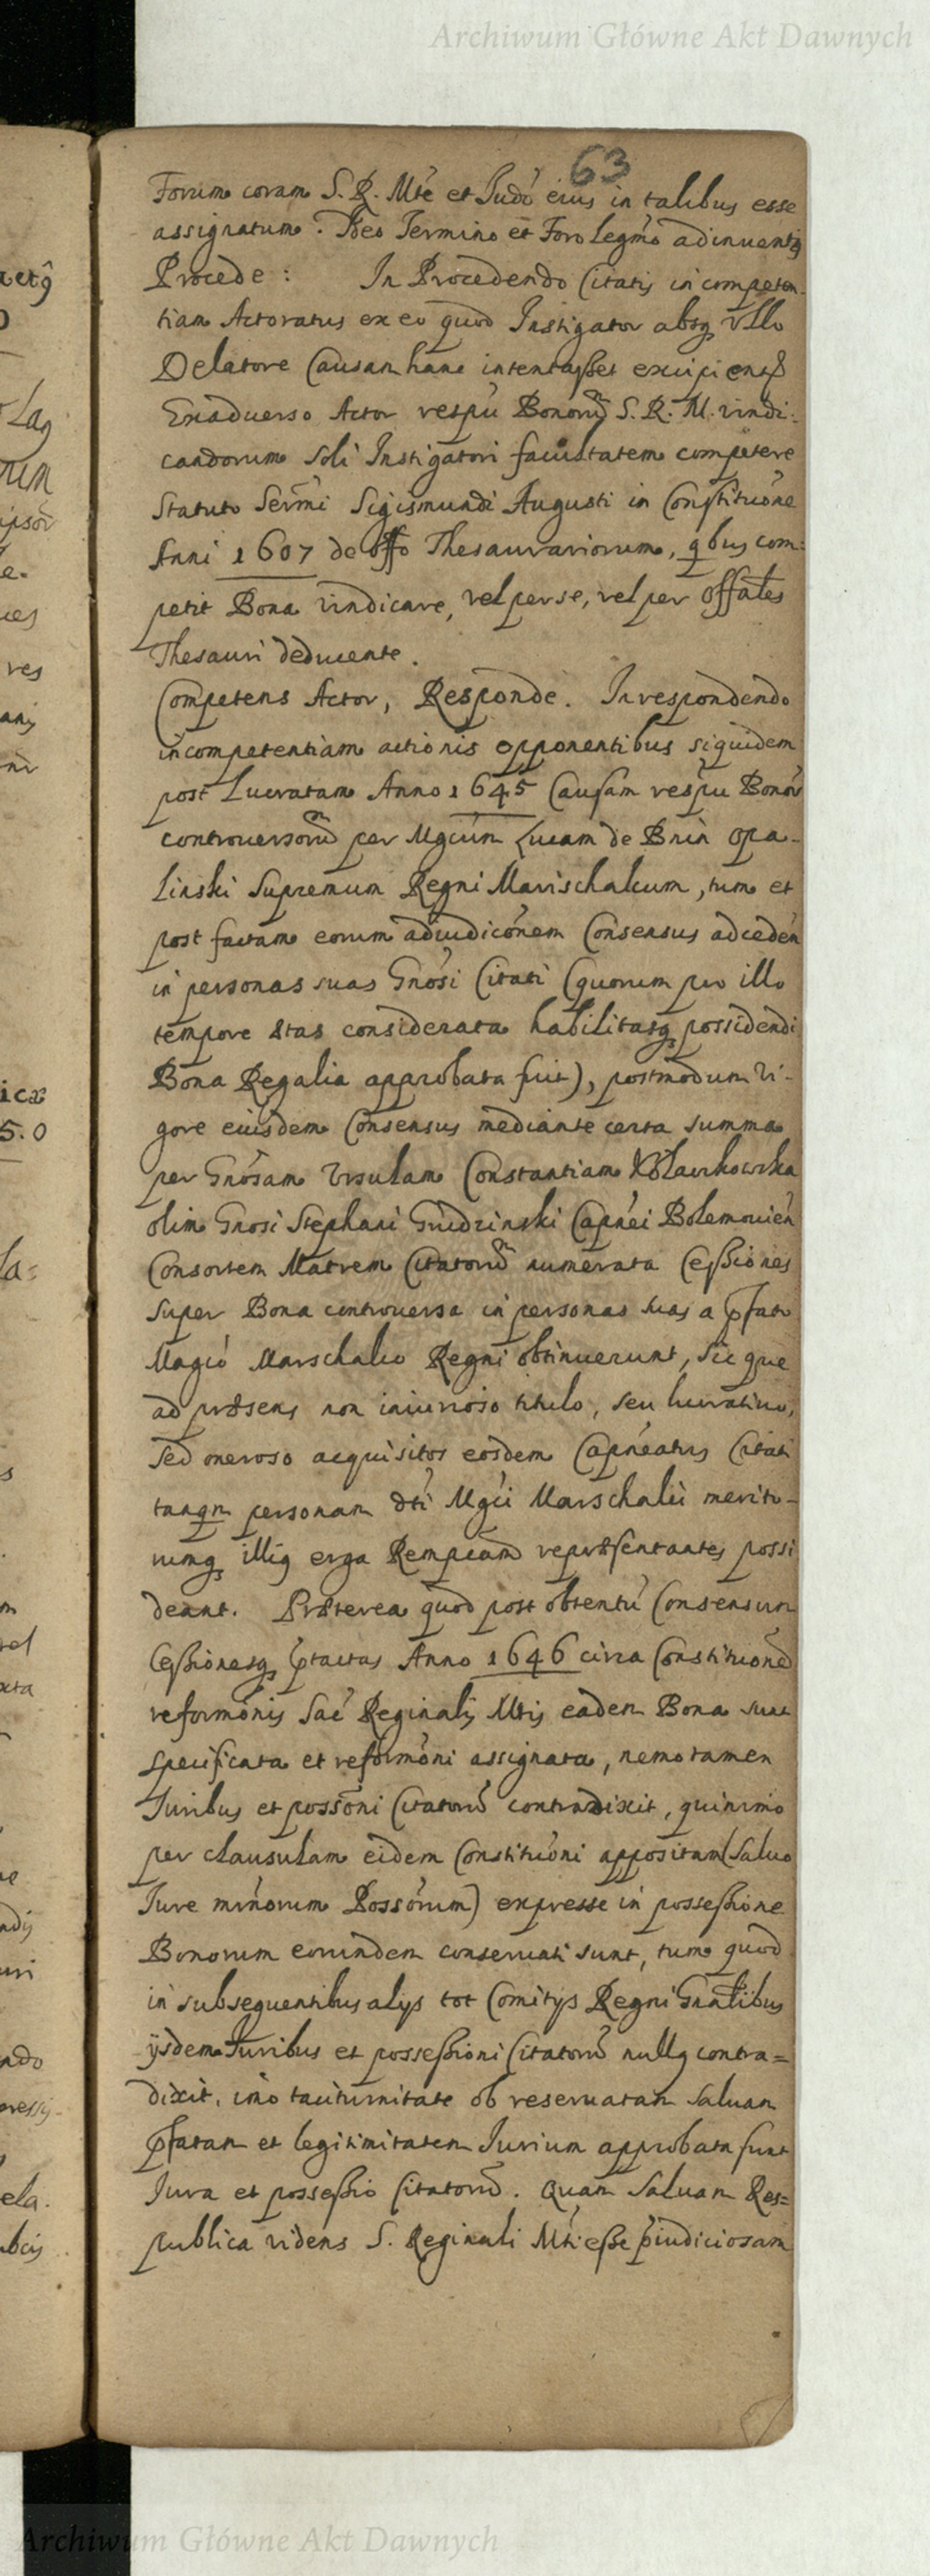 Archiwum Główne Akt Dawnych
63
Forum coram S. R. Mte et Judo eius in talibus esse
assignatum. Deo Termino et Foro legmo adinuentis
Procede: In Procedendo Citatis incompeten-
tiam Actoratus ex eo quod Instigator absq ullo
Delatore Causam hanc intentasset excipientib
Exaduerso Actor respu Bonoru S. R. M. vindi:
candorum soli Instigatori facultatem competere
Statuto Sermi Sigismundi Augusti in Constitutione
Anni 1607 de offo Thesaurariorum, qbus com:
petit Bona vindicare, vel per se, vel per offales
Thesauri deducente.
Competens Actor, Responde. In respondendo
incompetentiam actionis opponentibus siquidem
post Lucratam Anno 1645 Causam respu Bonor
controuersoru per Mgcum Lucam de Bnin Opa-
linski Supremum Regni Marischalcum, tum et
post factam eorum adiudiconem Consensus ad ceden
in personas suas Gnosi Citati (quorum pro illo
tempore ætas considerata habilitasq possidendi
Bona Regalia approbata fuit), postmodum vi-
gore eiusdem Consensus mediante certa summa
per Gnosam Vrsulam Constantiam
olim Gnosi Stephani Gnidzinski Capnei Bolemouien
Consortem Matrem Citatoru numerata Cessiones
super Bona controuersa in personas suas a pfato
Magco Marschalco Regni obtinuerunt, sic que
ad præsens non iniurioso titulo, seu lucratiuo,
sed oneroso acquisitos eosdem Capneatus Citati
tanqm personam dti Mgci Marschalci merito-
rumq illig erga Rempcam repræsentantes possi
deant. Præterea quod post obtentu Consensum
Cessionesq ptactas Anno 1646 circa Constitutione
reformonis Sac Reginalis Mtis eadem Bona sunt
specificata et reformoni assignata, nemo tamen
Juribus et possoni Citatoru contradixit, quinimo
per clausulam eidem Constitutioni appositam (Saluo
Jure minorum Possorum) expresse in possessione
Bonorum eorundem conseruati sunt, tum quod
in subsequentibus alijs tot Comitijs Regni Gnalibus
ijsdem Juribus et possessioni Citatoru nullg contra=
dixit, imo taciturnitate ob reseruatam Saluam
pfatam et legitimitatem Jurium approbata sunt
Jura et possessio Citatoru. Quam Saluam Res=
publica videns S. Reginali Mti esse piudiciosam
Archiwum Główne Akt Dawnych